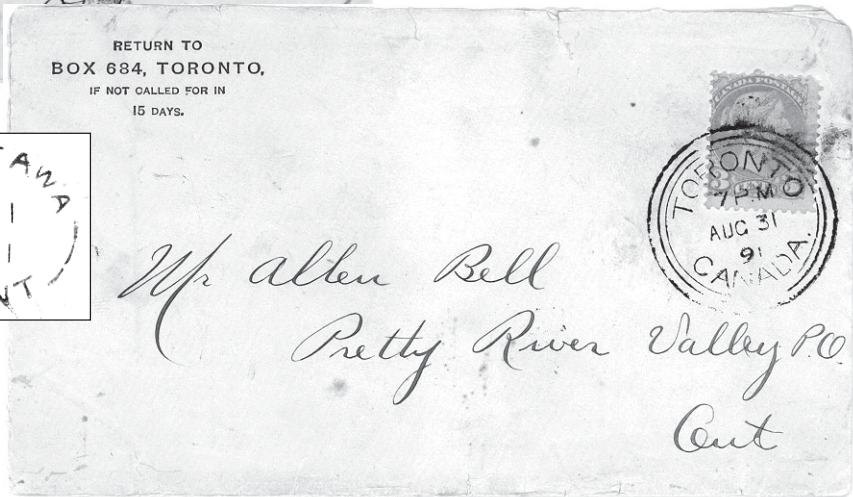 RETURN TO
BOX 684, TORONTO,
IF NOT CALLED FOR IN
15 DAYS.
CANADA POSTAGE
TORONTO
7 P.M
AUG 31
91
CANADA.
Mr Allen Bell
Pretty River Valley P.O.
Ont